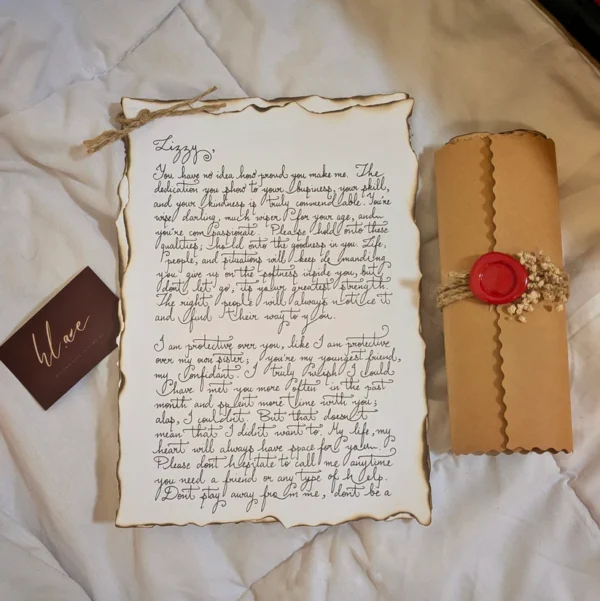 Lizzy,
You have no idea how proud you make me. The
dedication you show to your business, your skill,
and your kindness is truly commendable. You're
wise darling, much wiser for your age, and
you're compassionate. Please hold onto these
qualities; hold onto the goodness in you. Life,
people, and situations will keep demanding
you give up on the softness inside you, but
don't let go; its your greatest strength.
The right people will always notice it
and find their way to you.
I am protective over you, like I am protective
over my own sister; you're my youngest friend,
my confidant. I truly wish I could
have met you more often in the past
month and spent more time with you;
alas, I couldn't. But that doesn't
mean that I didn't want to. My life, my
heart will always have space for you.
Please don't hesitate to call me anytime
you need a friend or any type of help.
Dont stay away from me, dont be a